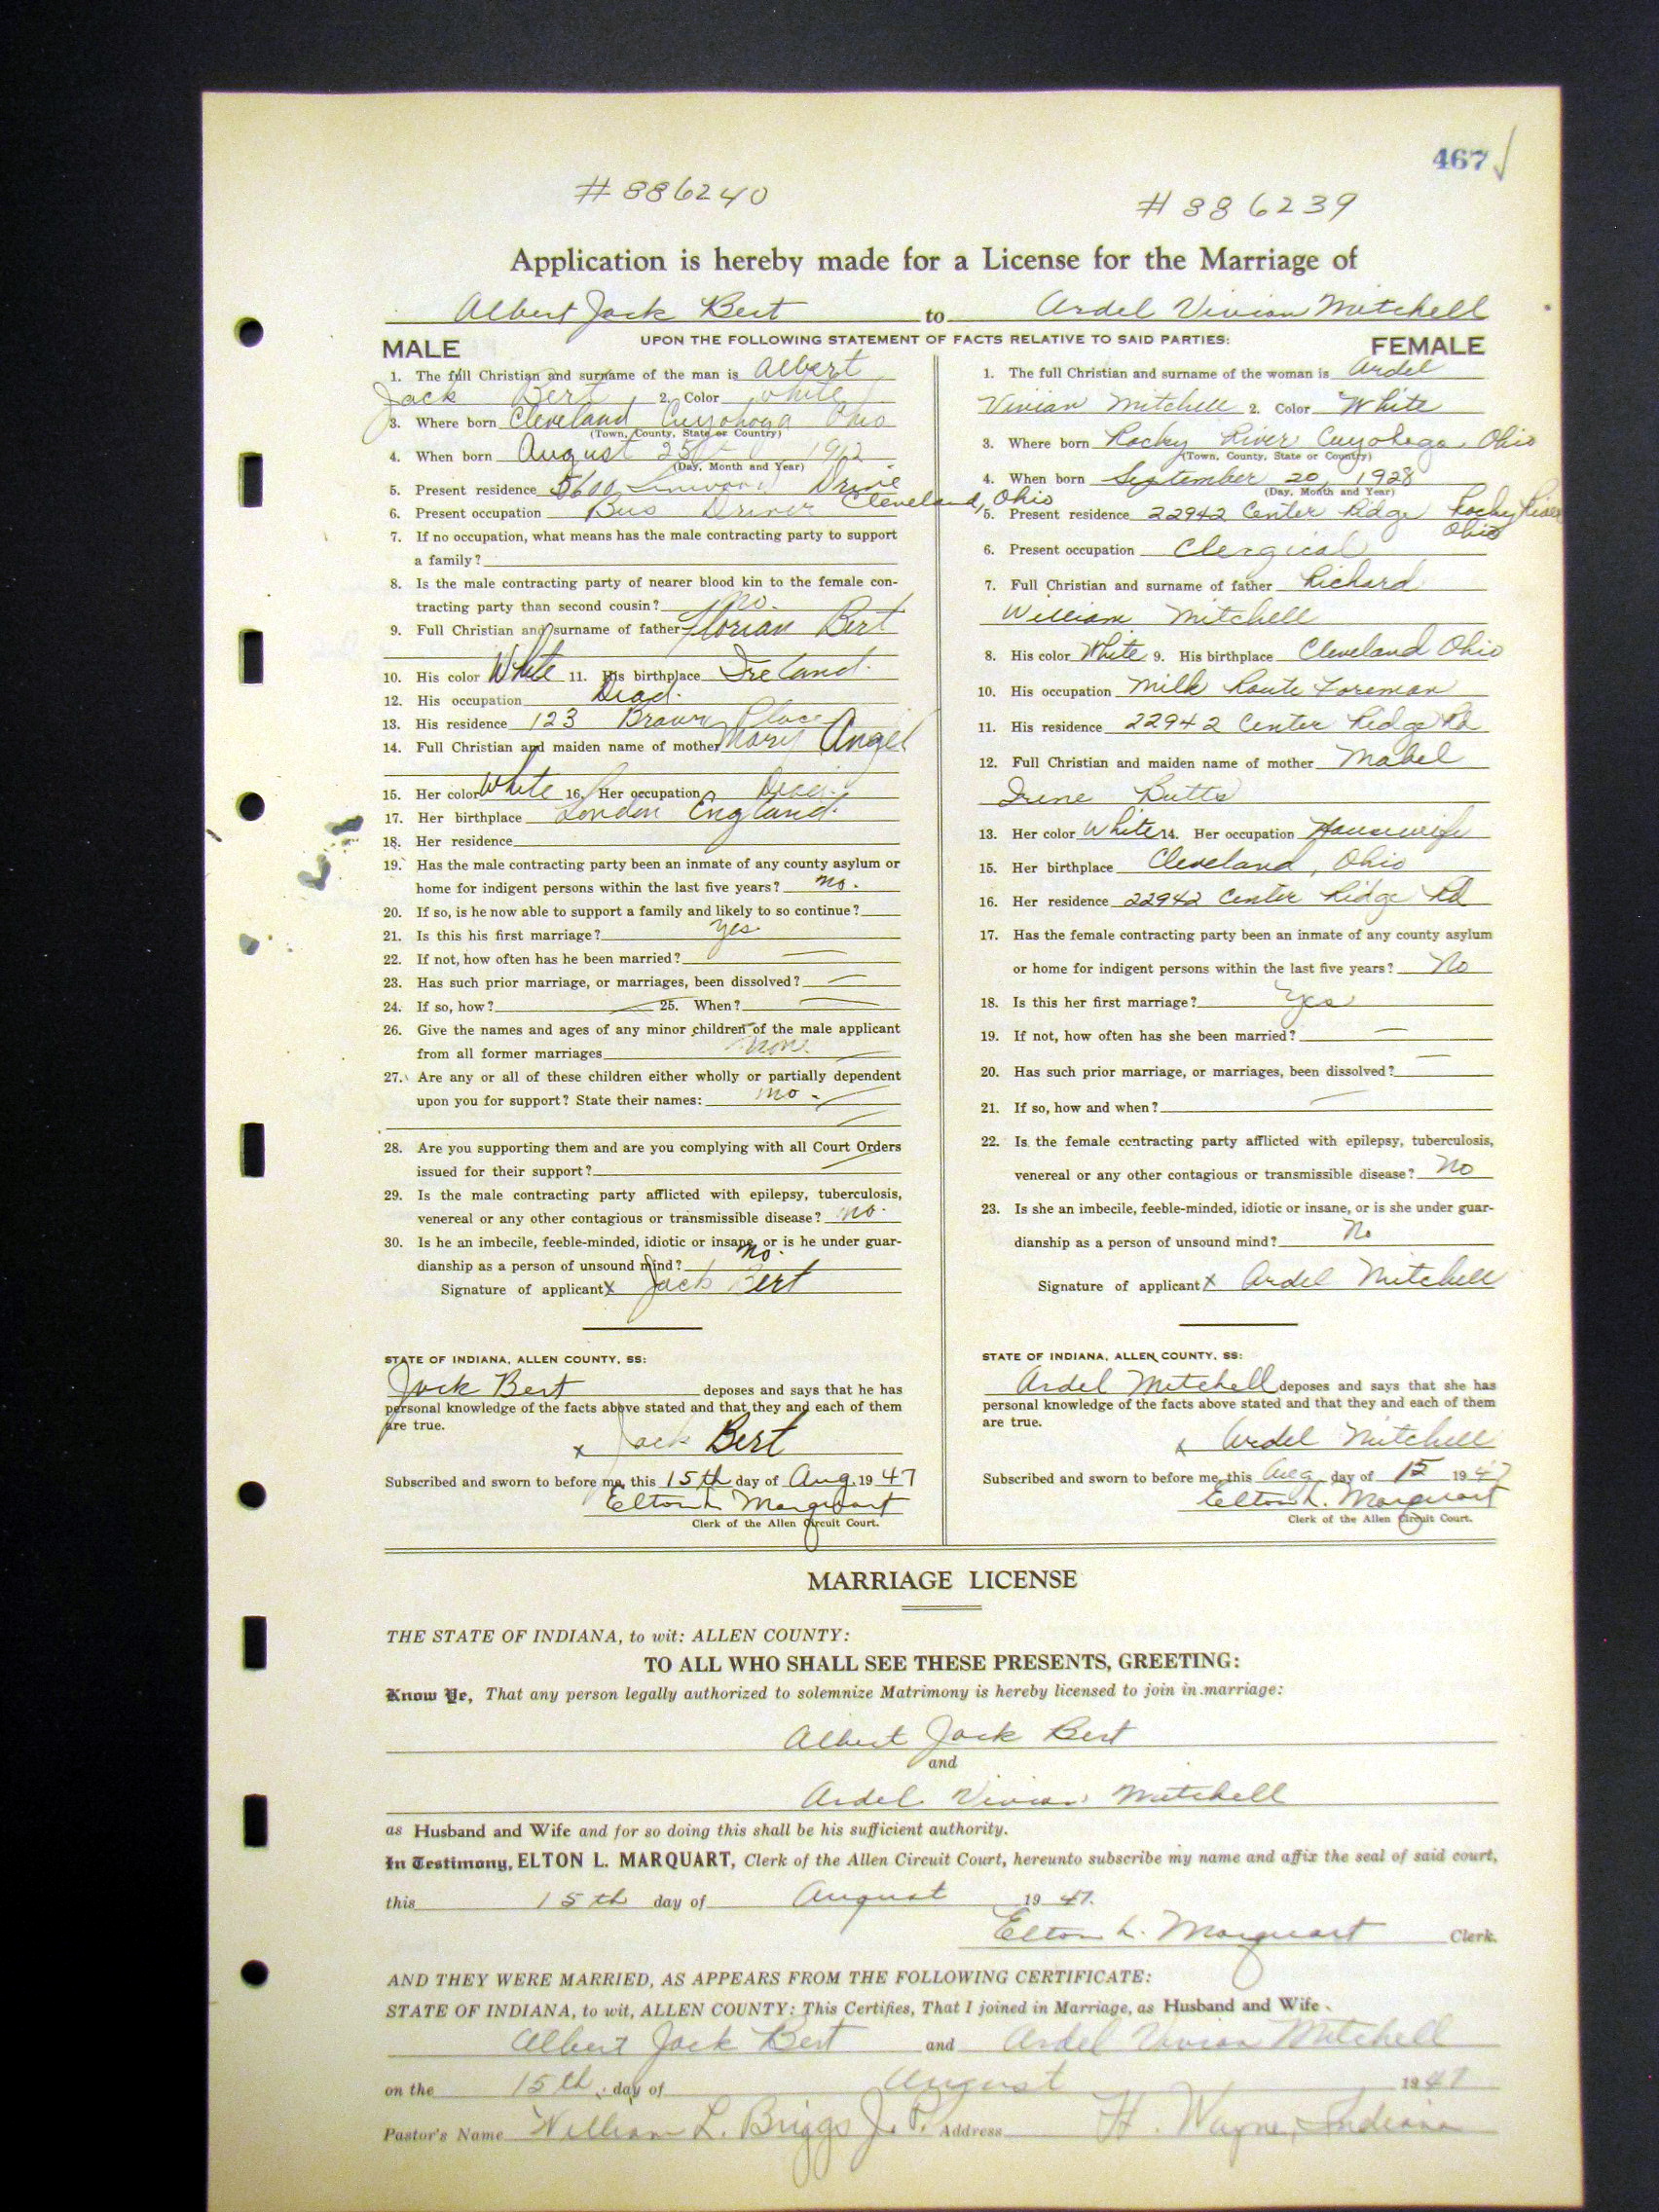 467
#886240 #886239
Application is hereby made for a License for the Marriage of
Albert Jack Bert to Ardel Vivian Mitchell
UPON THE FOLLOWING STATEMENT OF FACTS RELATIVE TO SAID PARTIES:
MALE
1. The full Christian and surname of the man is Albert
Jack Bert 2. Color White
3. Where born Cleveland Cuyohoga Ohio
(Town, County, State or Country)
4. When born August 25 1912
(Day, Month and Year)
5. Present residence 5600 Linwood Drive
Cleveland, Ohio
6. Present occupation Bus Driver
7. If no occupation, what means has the male contracting party to support
a family?
8. Is the male contracting party of nearer blood kin to the female con-
tracting party than second cousin? no.
9. Full Christian and surname of father Florian Bert
10. His color White 11. His birthplace Ireland.
12. His occupation Dead.
13. His residence 123 Brown Place
14. Full Christian and maiden name of mother Mary Angel
15. Her color White 16. Her occupation Dead.
17. Her birthplace London England.
18. Her residence
19. Has the male contracting party been an inmate of any county asylum or
home for indigent persons within the last five years? no.
20. If so, is he now able to support a family and likely to so continue?
21. Is this his first marriage? yes
22. If not, how often has he been married? —
23. Has such prior marriage, or marriages, been dissolved? —
24. If so, how? — 25. When? —
26. Give the names and ages of any minor children of the male applicant
from all former marriages none.
27. Are any or all of these children either wholly or partially dependent
upon you for support? State their names: no.
28. Are you supporting them and are you complying with all Court Orders
issued for their support?
29. Is the male contracting party afflicted with epilepsy, tuberculosis,
venereal or any other contagious or transmissible disease? no.
30. Is he an imbecile, feeble-minded, idiotic or insane, or is he under guar-
dianship as a person of unsound mind? no.
Signature of applicant X Jack Bert
STATE OF INDIANA, ALLEN COUNTY, SS:
Jack Bert deposes and says that he has
personal knowledge of the facts above stated and that they and each of them
are true.
x Jack Bert
Subscribed and sworn to before me, this 15th day of Aug. 1947
Elton L. Marquart
Clerk of the Allen Circuit Court.
FEMALE
1. The full Christian and surname of the woman is Ardel
Vivian Mitchell 2. Color White
3. Where born Rocky River Cuyohoga Ohio
(Town, County, State or Country)
4. When born September 20, 1928
(Day, Month and Year)
5. Present residence 22942 Center Ridge Rocky River
Ohio
6. Present occupation Clergical
7. Full Christian and surname of father Richard
William Mitchell
8. His color White 9. His birthplace Cleveland Ohio
10. His occupation Milk Route Foreman
11. His residence 22942 Center Ridge Rd
12. Full Christian and maiden name of mother Mabel
Irene Butts
13. Her color White 14. Her occupation Housewife
15. Her birthplace Cleveland, Ohio
16. Her residence 22942 Center Ridge Rd
17. Has the female contracting party been an inmate of any county asylum
or home for indigent persons within the last five years? No
18. Is this her first marriage? Yes
19. If not, how often has she been married? —
20. Has such prior marriage, or marriages, been dissolved? —
21. If so, how and when? —
22. Is the female contracting party afflicted with epilepsy, tuberculosis,
venereal or any other contagious or transmissible disease? No
23. Is she an imbecile, feeble-minded, idiotic or insane, or is she under guar-
dianship as a person of unsound mind? No
Signature of applicant X Ardel Mitchell
STATE OF INDIANA, ALLEN COUNTY, SS:
Ardel Mitchell deposes and says that she has
personal knowledge of the facts above stated and that they and each of them
are true.
x Ardel Mitchell
Subscribed and sworn to before me, this Aug day of 15 1947
Elton L. Marquart
Clerk of the Allen Circuit Court.
MARRIAGE LICENSE
THE STATE OF INDIANA, to wit: ALLEN COUNTY:
TO ALL WHO SHALL SEE THESE PRESENTS, GREETING:
Know Ye, That any person legally authorized to solemnize Matrimony is hereby licensed to join in marriage:
Albert Jack Bert
and
Ardel Vivian Mitchell
as Husband and Wife and for so doing this shall be his sufficient authority.
In Testimony, ELTON L. MARQUART, Clerk of the Allen Circuit Court, hereunto subscribe my name and affix the seal of said court,
this 15th day of August 1947.
Elton L. Marquart Clerk.
AND THEY WERE MARRIED, AS APPEARS FROM THE FOLLOWING CERTIFICATE:
STATE OF INDIANA, to wit, ALLEN COUNTY: This Certifies, That I joined in Marriage, as Husband and Wife
Albert Jack Bert and Ardel Vivian Mitchell
on the 15th day of August 1947
Pastor's Name William L. Briggs J.P. Address Ft. Wayne, Indiana